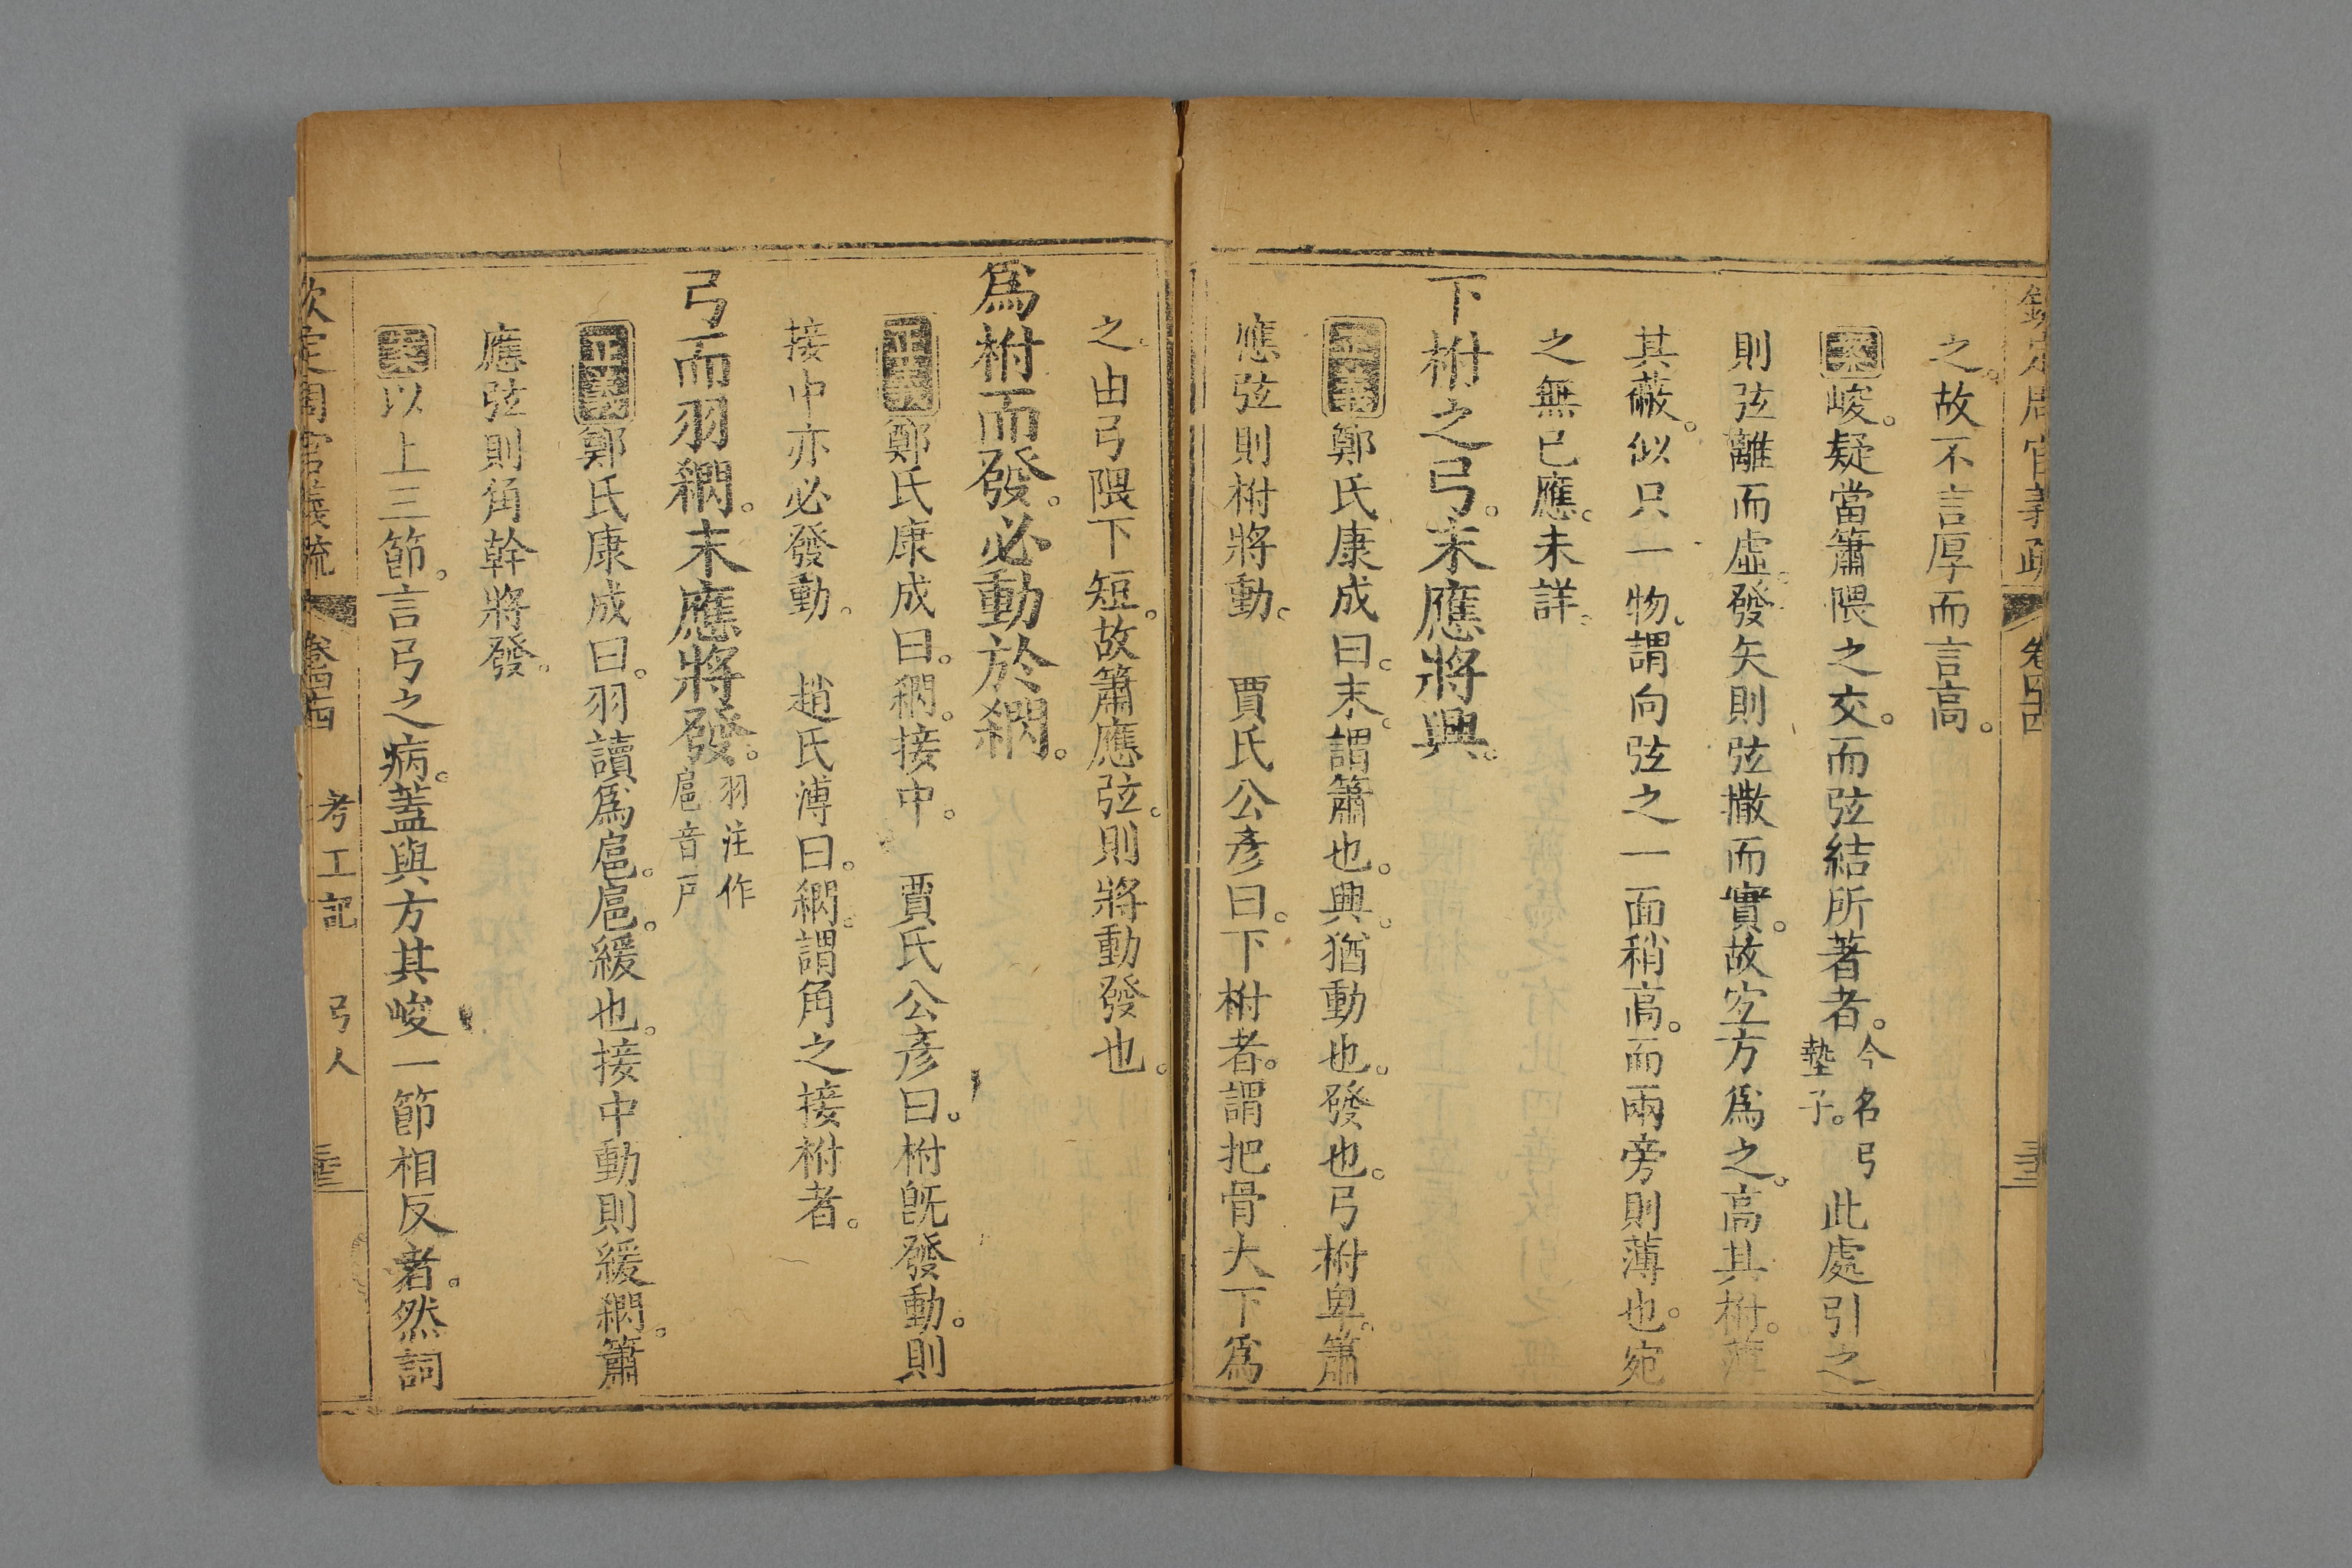 欽定周官義疏 卷四十四 三十三
之。故不言厚而言高。
案峻。疑當簫隈之交。而弦結所著者。今名弓墊子。此處引之
則弦離而虛。發矢則弦撒而實。故必方爲之。高其柎。薄
其蔽。似只一物。謂向弦之一面稍高。而兩旁則薄也。宛
之無已應。未詳。
下柎之弓。末應將興。
正義鄭氏康成曰。末。謂簫也。興。猶動也。發也。弓柎卑。簫
應弦則柎將動。 賈氏公彥曰。下柎者。謂把骨大下爲
之由弓隈下短。故簫應弦。則將動發也。
爲柎而發。必動於䋈。
正義鄭氏康成曰。䋈。接中。 賈氏公彥曰。柎旣發動。則
接中亦必發動。 趙氏溥曰。䋈。謂角之接柎者。
弓而羽䋈。末應將發。羽注作扈音戸
正義鄭氏康成曰。羽讀爲扈。扈。緩也。接中動則緩䋈。簫
應弦則角幹將發。
案以上三節。言弓之病。蓋與方其峻一節相反者。然詞
欽定周官義疏 卷四十四 考工記 弓人 三十三